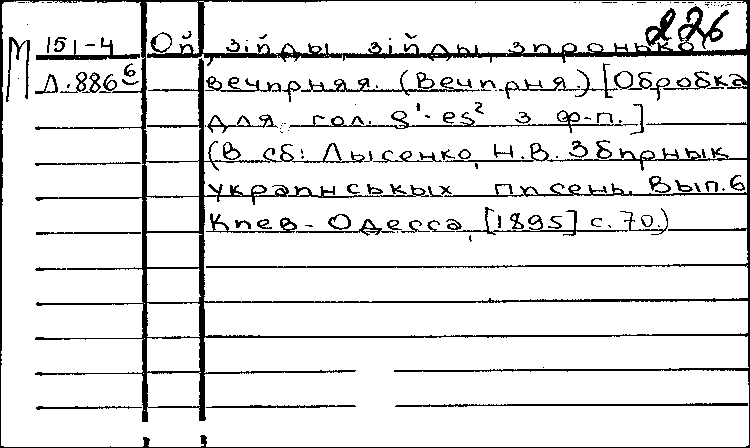 226
М 151-4 Ой, зійды, зійды, зпронько
Л.886⁶ вечпрняя. (Вечпрня.) [Обробка
для гол. g¹-es² з ф-п.]
(В сб: Лысенко, Н.В. Збпрнык
украпнськых ппсень. Вып.6
Кпев-Одесса, [1895] с. 70.)